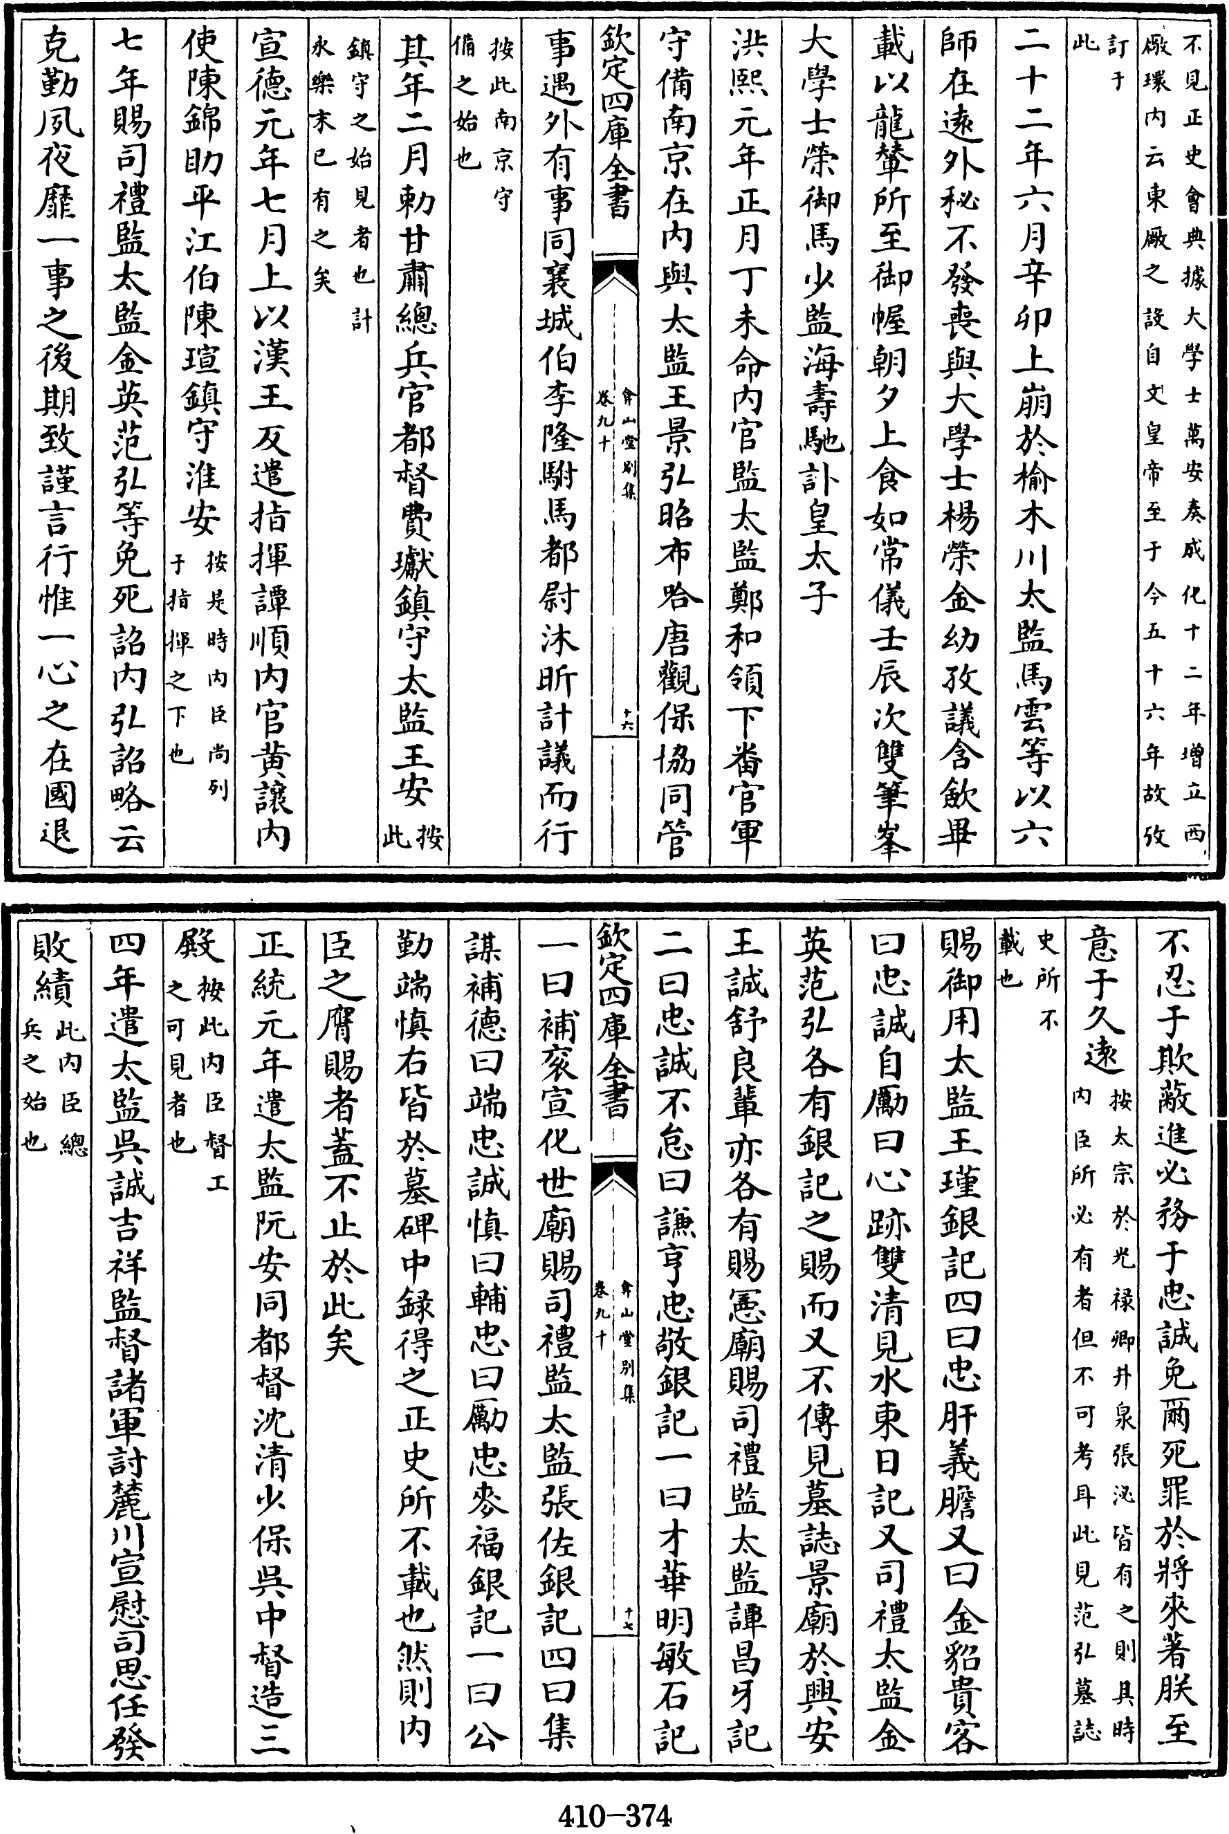 不見正史會典據大學士萬安奏成化十二年增立西
廠環内云東廠之設自文皇帝至于今五十六年故攷
訂于
此
二十二年六月辛卯上崩於榆木川太監馬雲等以六
師在逺外秘不發喪與大學士楊榮金幼孜議含歛畢
載以龍轝所至御幄朝夕上食如常儀壬辰次雙筆峯
大學士榮御馬少監海壽馳訃皇太子
洪熙元年正月丁未命内官監太監鄭和領下畨官軍
守備南京在内與太監王景弘昭布哈唐觀保協同管
欽定四庫全書
弇山堂别集
卷九十
十六
事遇外有事同襄城伯李隆駙馬都尉沐昕計議而行
按此南京守
備之始也
其年二月勅甘肅總兵官都督費瓛鎮守太監王安按
此
鎮守之始見者也計
永樂末已有之矣
宣德元年七月上以漢王反遣指揮譚順内官黄讓内
使陳錦助平江伯陳瑄鎮守淮安按是時内臣尚列
于指揮之下也
七年賜司禮監太監金英范弘等免死詔内弘詔略云
克勤夙夜靡一事之後期致謹言行惟一心之在國退
不忍于欺蔽進必務于忠誠免爾死罪於將來著朕至
意于久逺按太宗於光禄卿井泉張泌皆有之則其時
内臣所必有者但不可考耳此見范弘墓誌
史所不
載也
賜御用太監王瑾銀記四曰忠肝義膽又曰金貂貴客
曰忠誠自勵曰心跡雙清見水東日記又司禮太監金
英范弘各有銀記之賜而又不傳見墓誌景廟於興安
王誠舒良輩亦各有賜憲廟賜司禮監太監譚昌牙記
二曰忠誠不怠曰謙亨忠敬銀記一曰才華明敏石記
欽定四庫全書
弇山堂别集
卷九十
十七
一曰補衮宣化世廟賜司禮監太監張佐銀記四曰集
謀補德曰端忠誠慎曰輔忠曰勵忠麥福銀記一曰公
勤端慎右皆於墓碑中録得之正史所不載也然則内
臣之膺賜者蓋不止於此矣
正統元年遣太監阮安同都督沈清少保吳中督造三
殿按此内臣督工
之可見者也
四年遣太監吳誠吉祥監督諸軍討麓川宣慰司思任發
敗績此内臣總
兵之始也
410-374